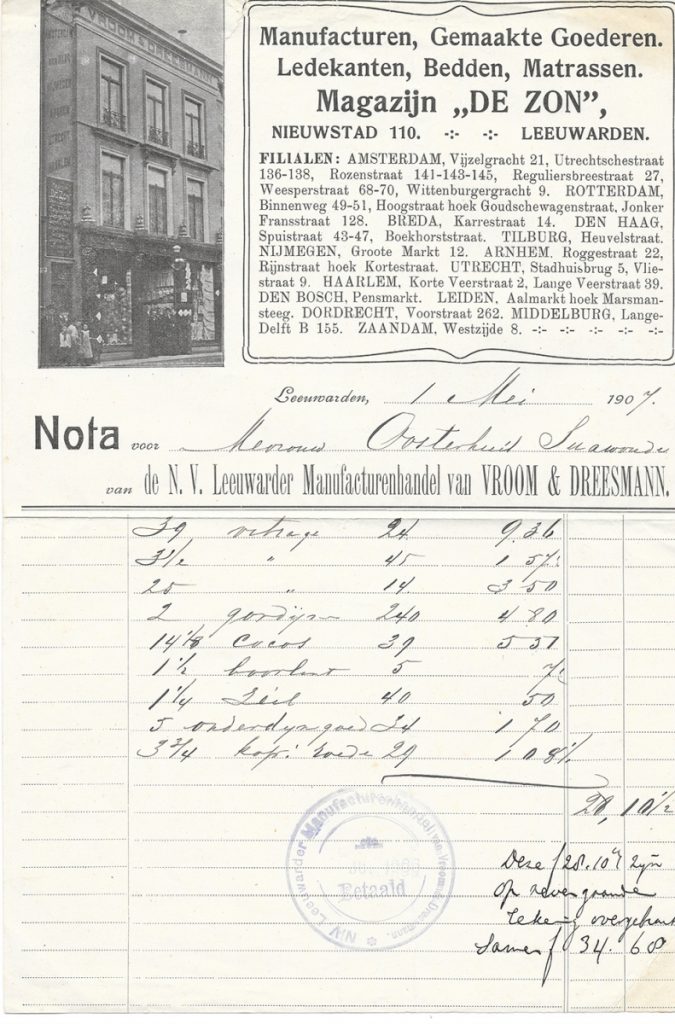 VROOM & DREESMANN
Manufacturen, Gemaakte Goederen.
Ledekanten, Bedden, Matrassen.
Magazijn „DE ZON”,
NIEUWSTAD 110. -:- -:- LEEUWARDEN.
FILIALEN: AMSTERDAM, Vijzelgracht 21, Utrechtschestraat
136-138, Rozenstraat 141-143-145, Reguliersbreestraat 27,
Weesperstraat 68-70, Wittenburgergracht 9. ROTTERDAM,
Binnenweg 49-51, Hoogstraat hoek Goudschewagenstraat, Jonker
Fransstraat 128. BREDA, Karrestraat 14. DEN HAAG,
Spuistraat 43-47, Boekhorststraat. TILBURG, Heuvelstraat.
NIJMEGEN, Groote Markt 12. ARNHEM, Roggestraat 22,
Rijnstraat hoek Kortestraat. UTRECHT, Stadhuisbrug 5, Vlie-
straat 9. HAARLEM, Korte Veerstraat 2, Lange Veerstraat 39.
DEN BOSCH, Pensmarkt. LEIDEN, Aalmarkt hoek Marsman-
steeg. DORDRECHT, Voorstraat 262. MIDDELBURG, Lange-
Delft B 155. ZAANDAM, Westzijde 8. -:- -:- -:- -:- -:-
Leeuwarden, 1 Mei 1907.
Nota voor Mevrouw Oosterhuit
van de N. V. Leeuwarder Manufacturenhandel van VROOM & DREESMANN.
39 vitrage 24 9.36
3½ " 45 1 57½
25 " 14 3 50
2 gordijn 240 4 80
14⅛ cocos 39 5 51
1½ 5 7½
1¼ Zeil 40 50
5 34 1 70
3¾ kop. roede 29 1 08½
28,10½
N.V. Leeuwarder Manufacturenhandel van Vroom & Dreesmann.
Betaald
Deze f 28.10½ zijn
op nevengaande
rekening overgebracht
Samen f 34.68